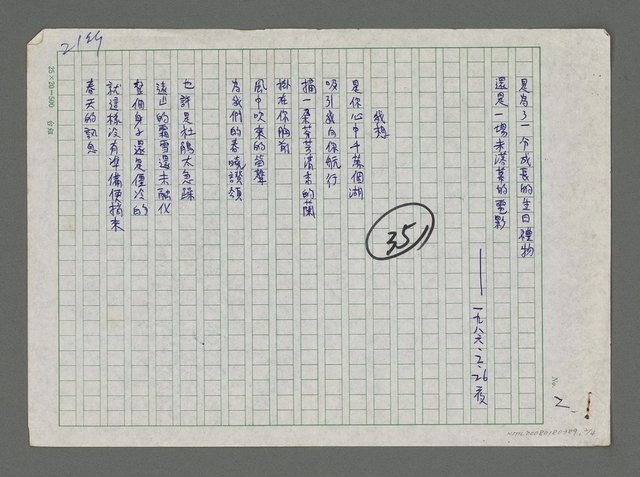 是為了一分成長的生日禮物
還是一場未落幕的電影
——一九八六、二、26夜
我想
是你心中千萬個湖
吸引我向你航行
描一朵芬芳清香的蘭
掛在你胸前
風中吹來的笛聲
為我們的春曉讚頌
也許是杜鵑太急躁
遠山的霜雪還未融化
整個身子還是僵冷的
就這樣沒有準備便捎來
春天的訊息
35
25×20=500
No.
2